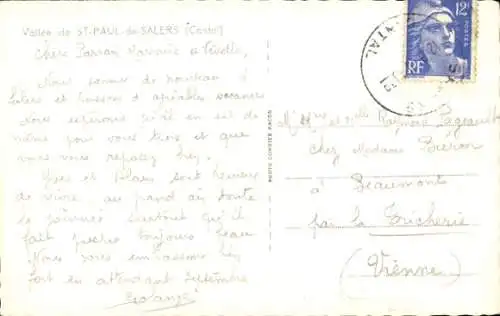 Vallée de ST-PAUL-de-SALERS (Cantal)
Chers Parrain Marraine
Nous sommes de nouveau à
Salers et passons d'agréables vacances
nous espérons qu'il en est de
même pour vous tous et que
vous vous reposez bien.
Yves et Alain sont heureux
de vivre au grand air toute
la journée surtout qu'il
fait presque toujours beau
Nous vous embrassons bien
fort en attendant Septembre
Solange
PHOTO COMBIER MACON
12F
POSTES
RF
CANTAL
M. Mme et Mlle Raymond
chez Madame
à Beaumont
par la Tricherie
(Vienne)